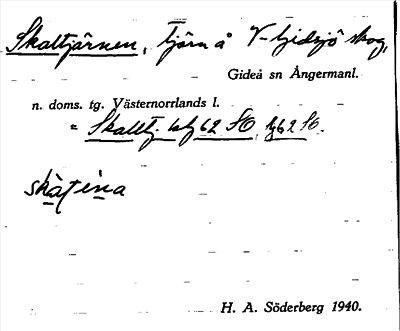 Skaltjärnen, Tjärn å V-Gidsjö skog,
Gideå sn Ångermanl.
n. doms. tg. Västernorrlands l.
= Skalltj. 62 SO 62 SO.
H. A. Söderberg 1940.